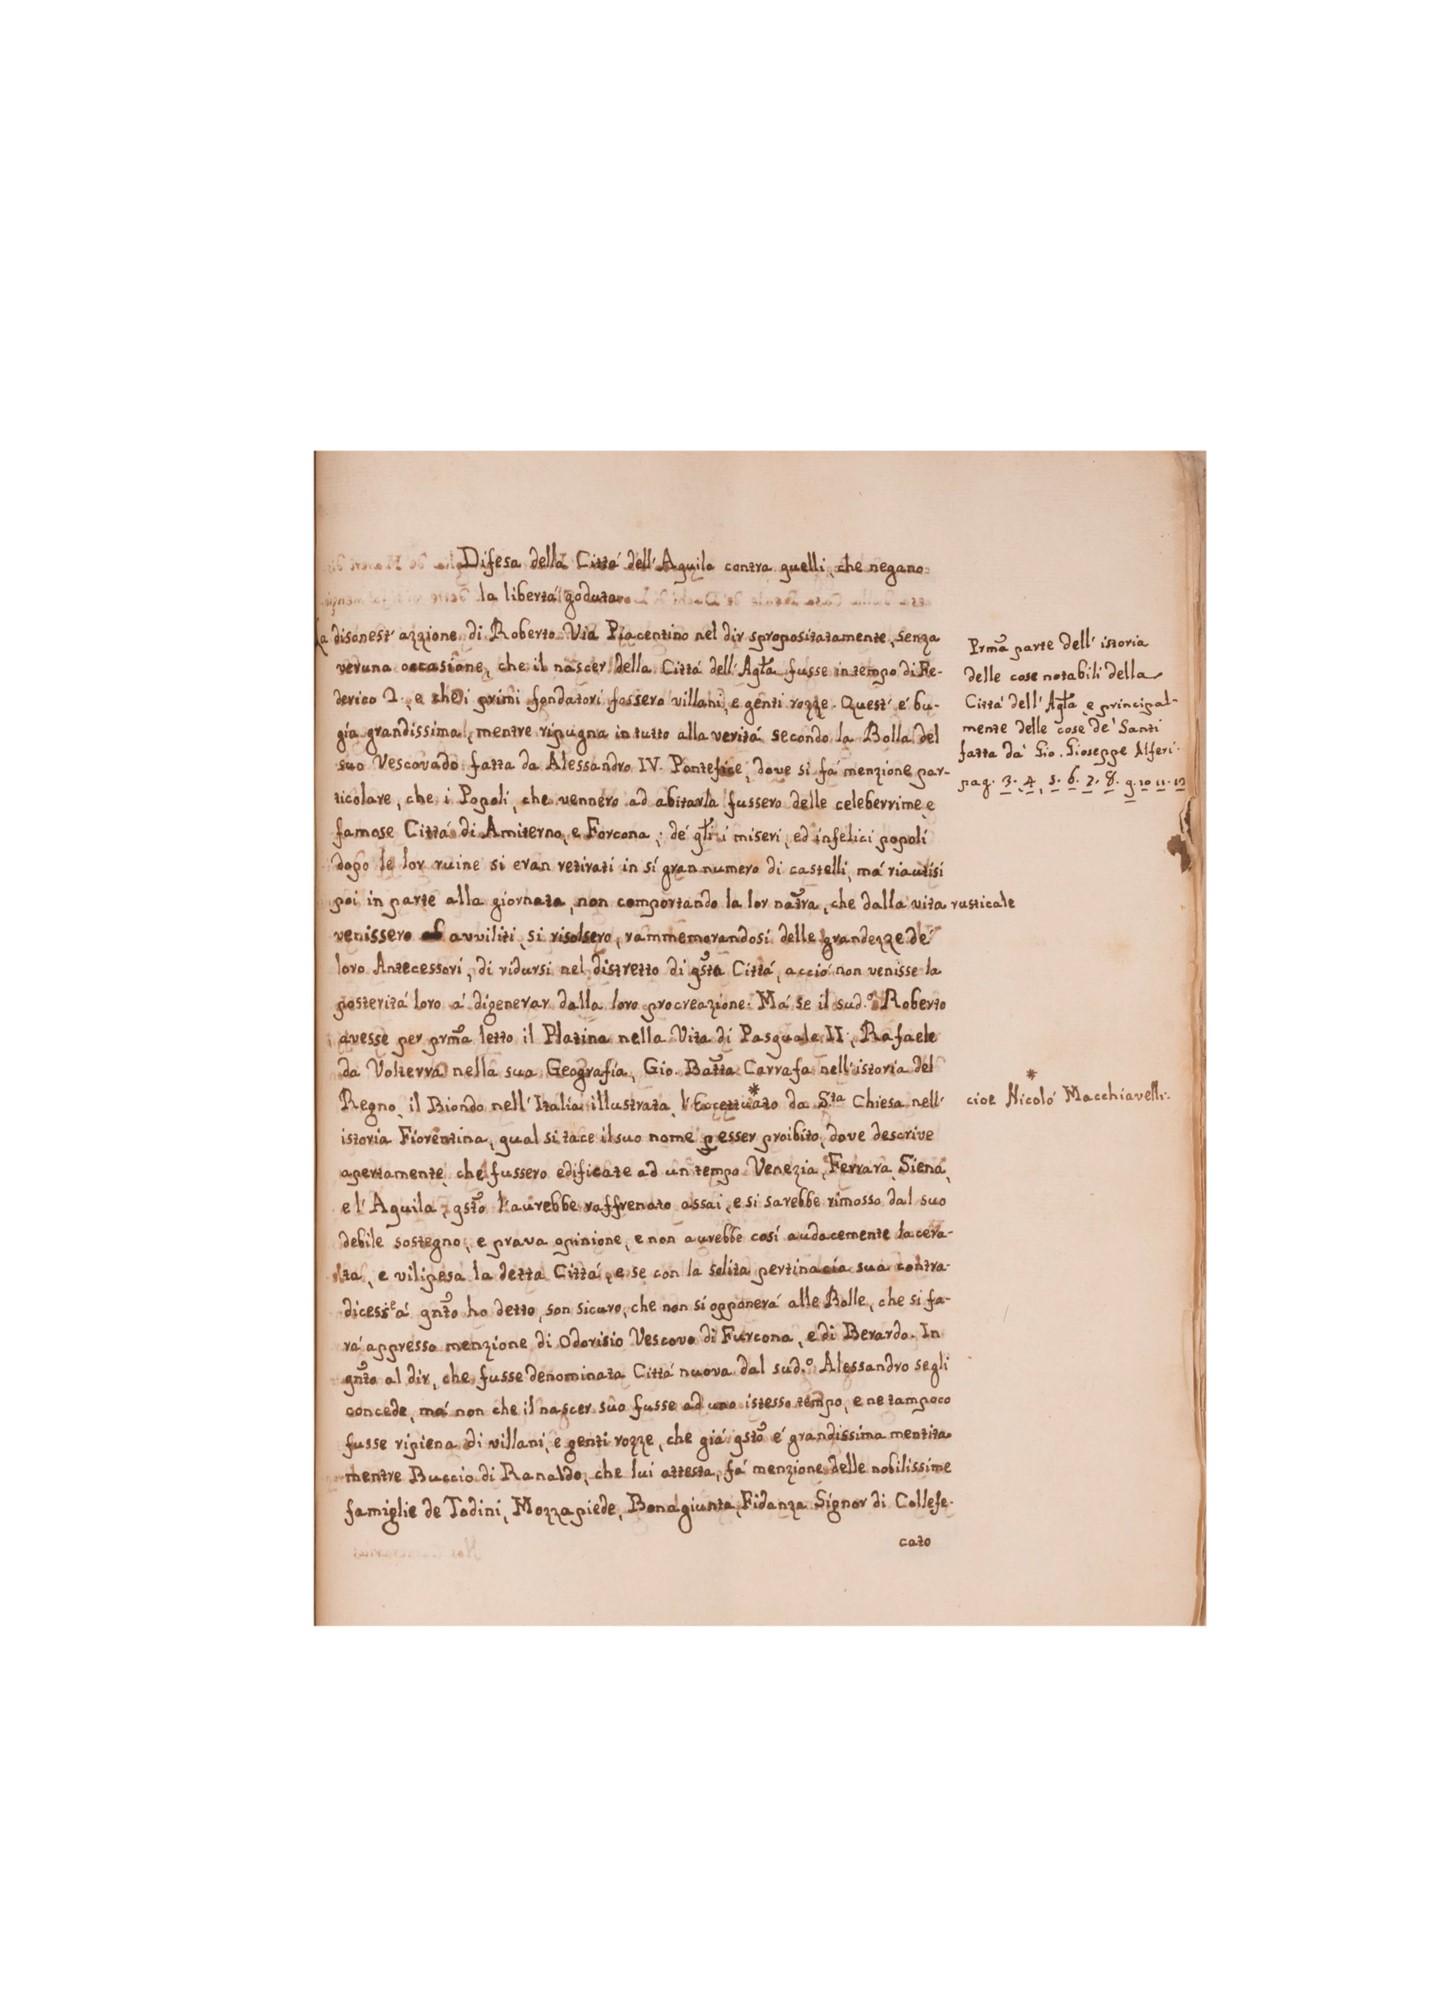 Difesa della Cittá dell'Aquila contra quelli, che negano
la libertá goduta
La disonest' azzione di Roberto Via Piacentino nel dir spropositatamente, senza
veruna occasione, che il nascer della Cittá dell'Aqla fusse in tempo di Fe-
derico 2. e che i primi fondatori fossero villani, e genti rozze. Quest' é bu-
gia grandissima, mentre ripugna in tutto alla veritá secondo la Bolla del
suo Vescovado fatta da Alessandro IV. Pontefice, dove si fá menzione par-
ticolare, che i Popoli, che vennero ad abitarla fussero delle celeberrime, e
famose Cittá di Amiterno, e Forcona; dé qli i miseri, ed infelici popoli
dopo le lor ruine si eran retirati in sí gran numero di castelli, má riautisi
poi in parte alla giornata, non comportando la lor natra, che dalla vita rusticale
venissero avviliti, si risolsero, rammemorandosi delle grandezze de'
loro Antecessori, di ridursi nel distretto di qsta Cittá, acció non venisse la
posteritá loro á digenerar dalla loro procreazione. Má se il sud.o Roberto
avesse per prma letto il Platina nella Vita di Pasquale II., Rafaele
da Volterra nella sua Geografia, Gio. Batta Carrafa nell'istoria del
Regno, il Biondo nell'Italia illustrata, l'Eccettuato* da S.ta Chiesa nell'
istoria Fiorentina, qual si tace il suo nome p esser proibito, dove descrive
apertamente, che fussero edificate ad un tempo Venezia, Ferrara, Siena,
e l'Aquila, qsto l'aurebbe raffrenato assai, e si sarebbe rimosso dal suo
debile sostegno, e prava opinione, e non aurebbe cosí audacemente lacera-
ta, e vilipesa la detta Cittá, e se con la solita pertinacia sua contra-
dicesse á qnto ho detto, son sicuro, che non si opponerá alle Bolle, che si fa-
rá appresso menzione di Odorisio Vescovo di Furcona, e di Berardo. In
qnto al dir, che fusse denominata Cittá nuova dal sud.o Alessandro segli
concede, má non che il nascer suo fusse ad uno istesso tempo, e ne tampoco
fusse ripiena di villani, e genti rozze, che giá qsto é grandissima mentita
mentre Buccio di Ranaldo, che lui attesta, fá menzione delle nobilissime
famiglie de Todini, Mozzapiede, Bonagiunta, Fidanza Signor di Collefe-
cato
Prma parte dell' istoria
delle cose notabili della
Cittá dell' Aqla e principal-
mente delle cose de' Santi
fatta da Gio. Gioseppe Alferi.
pag. 3. 4. 5. 6. 7. 8. 9. 10 11. 12
*
cioe Nicoló Macchiavelli.